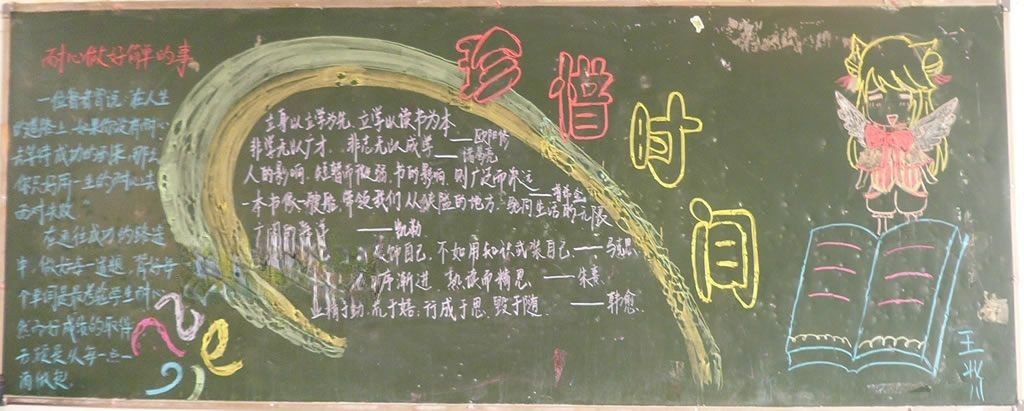 耐心做好简单的事
一位智者曾说：在人生
的道路上，如果你没有耐心
去等待成功的到来，那么
你只好用一生的耐心去
面对失败
在通往成功的路途
中，做好每一道题，背好每
个单词是最考验学生耐心
好成绩的取得
是从每一点一
滴做起
珍惜时间
立身以立学为先，立学以读书为本
——欧阳修
非学无以广才，非志无以成学
——诸葛亮
人的影响，短暂而微弱，书的影响，则广泛而深远
一本书像一艘船，带领我们从狭隘的地方，驶向生活的无限
广阔的海洋 ——凯勒
饰自己，不如用知识武装自己——马克思
序渐进 熟读而精思 ——朱熹
业精于勤，荒于嬉；行成于思，毁于随 ——韩愈
王